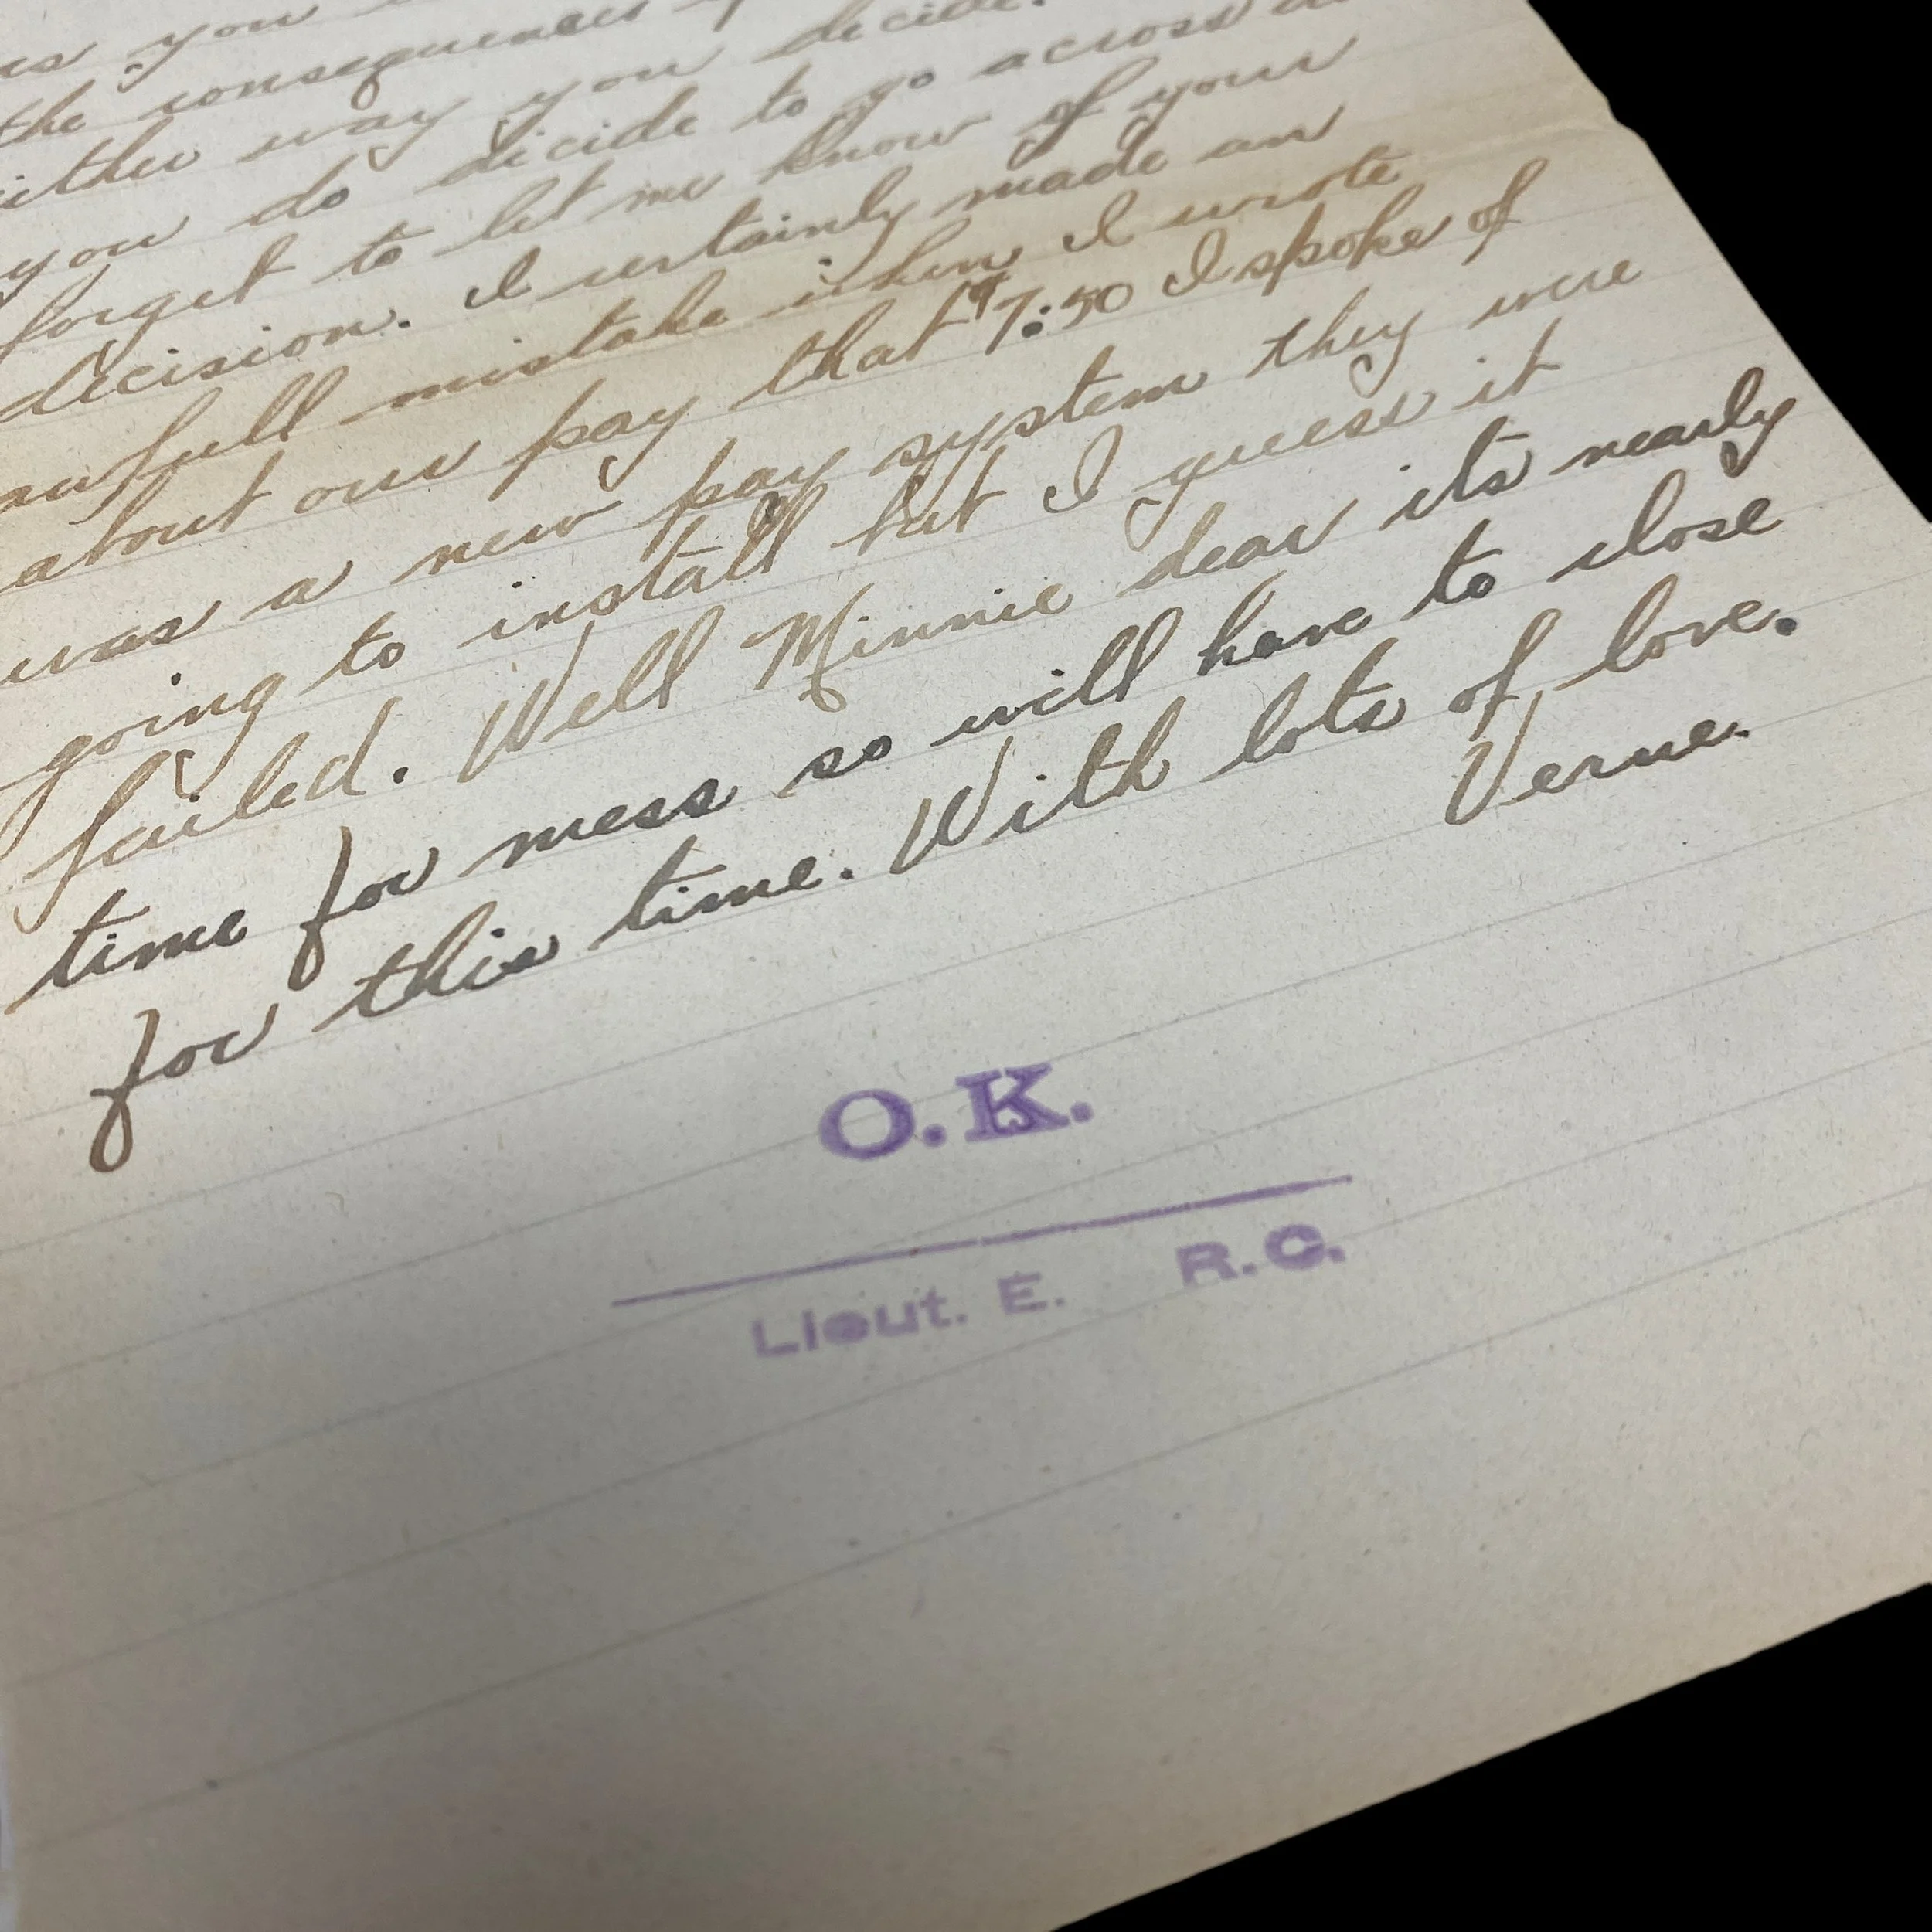 you
the consequences
either way you decide.
you do decide to go across
forget to let me know of your
decision. I certainly made an
awfull mistake when I wrote
about our pay that 97:50 I spoke of
was a new pay system they were
going to install but I guess it
failed. Well Minnie dear its nearly
time for mess so will have to close
for this time. With lots of love.
Verne.
O.K.
Lieut. E. R.C.